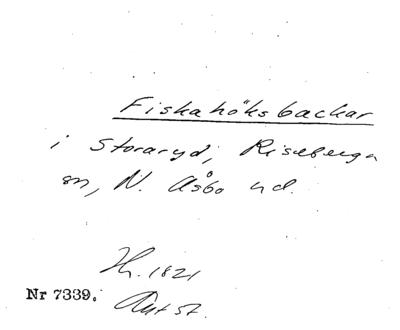 Fiskahöksbackar
i Storaryd, Riseberga
sn, N. Åsbo hd.
H. 1821
Nr 7339.